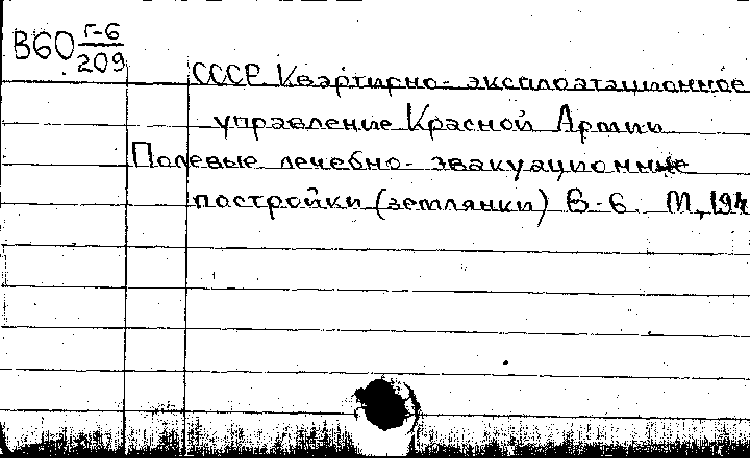 В60 Г-6/209
СССР. Квартирно-эксплоатационное
управление Красной Армии
Полевые лечебно-эвакуационные
постройки (землянки) б-6. М, 194